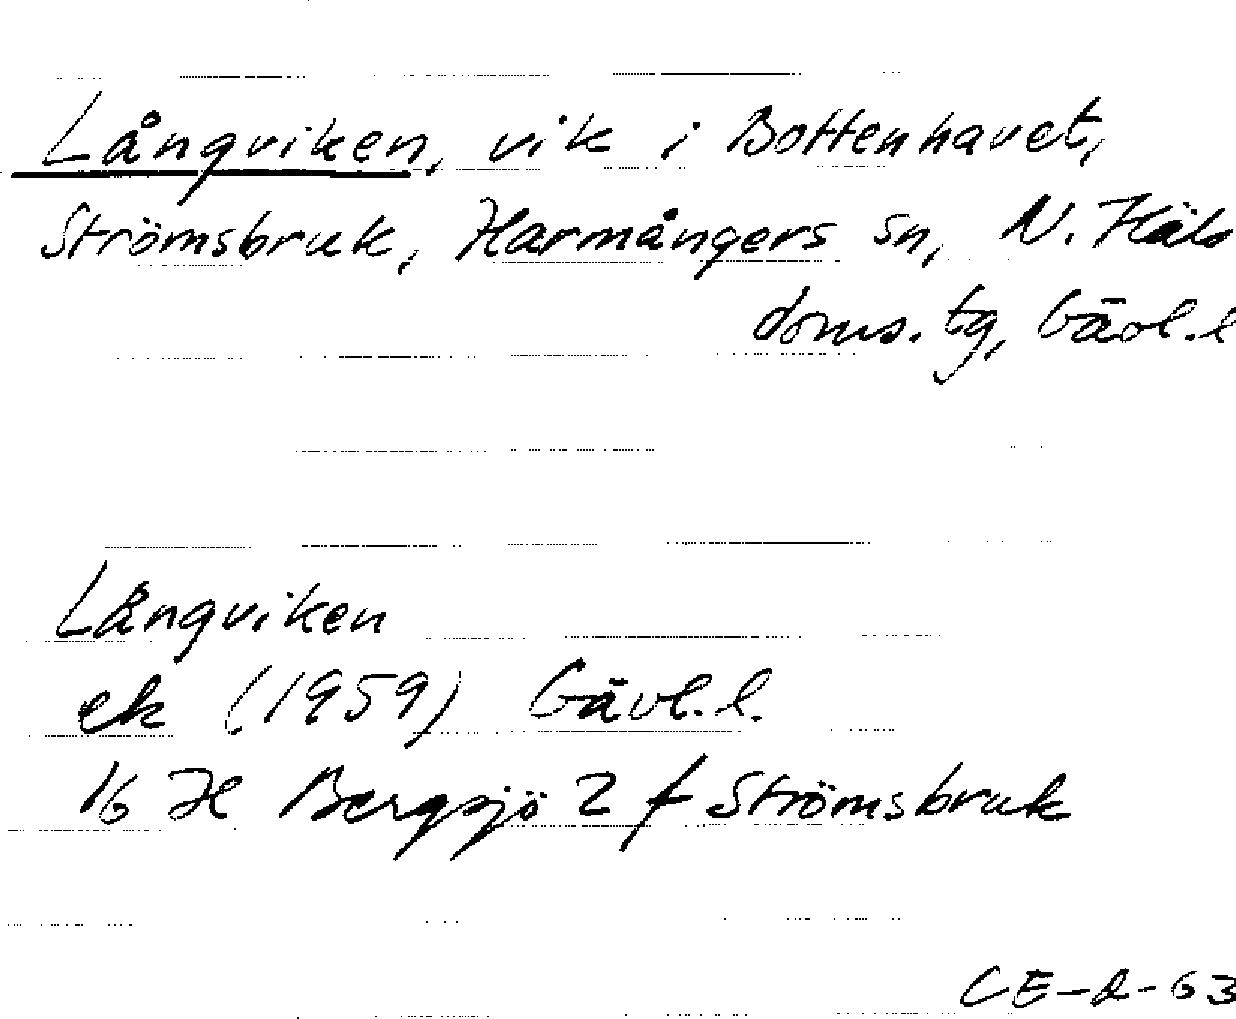 Långviken, vik i Bottenhavet,
Strömsbruk, Harmångers sn, N. Häls
doms. tg, Gävl. l
Långviken
ek (1959) Gävl. l.
16 H Bergsjö 2 f Strömsbruk
CE-2-63